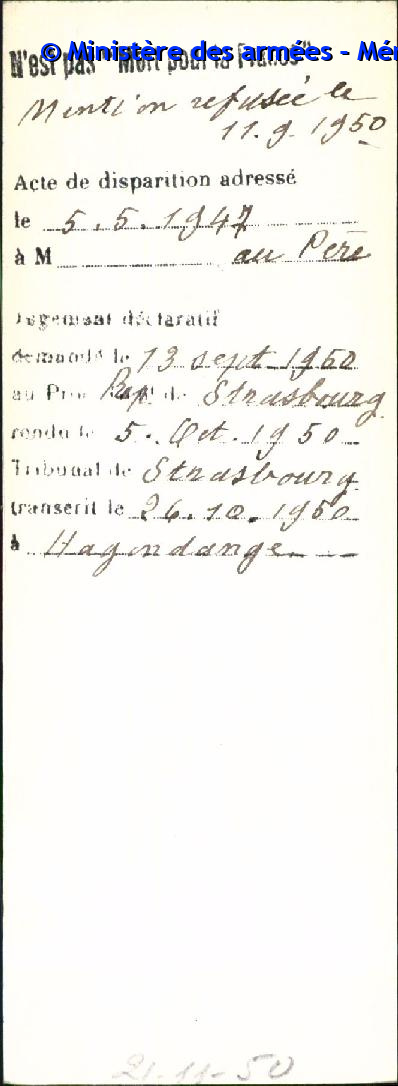 © Ministère des armées - Mém
N'est pas "Mort pour la France"
Mention refusée le
11.9.1950
Acte de disparition adressé
le 5.5.1947
à M au Père
Jugement déclaratif
demandé le 13 sept 1950
au Proc Rep de Strasbourg
rendu le 5. Oct. 1950
Tribunal de Strasbourg
transcrit le 26.10.1950
à Hagondange
21-11-50